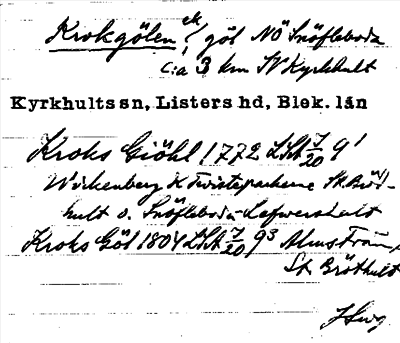 Krokgölen, göl NÖ Snöfleboda
c:a 3 km SV Kyrkhult
Kyrkhults sn, Listers hd, Blek. län
Kroks Giöhl 1772 LSA J/20 9¹
Wirkenberg K Twisteparkerne St. Bröt-
hult o. Snöfleboda - Lefwershult
Kroks Göl 1804 LSA J/20 9³ Almsträn
St Bröthult